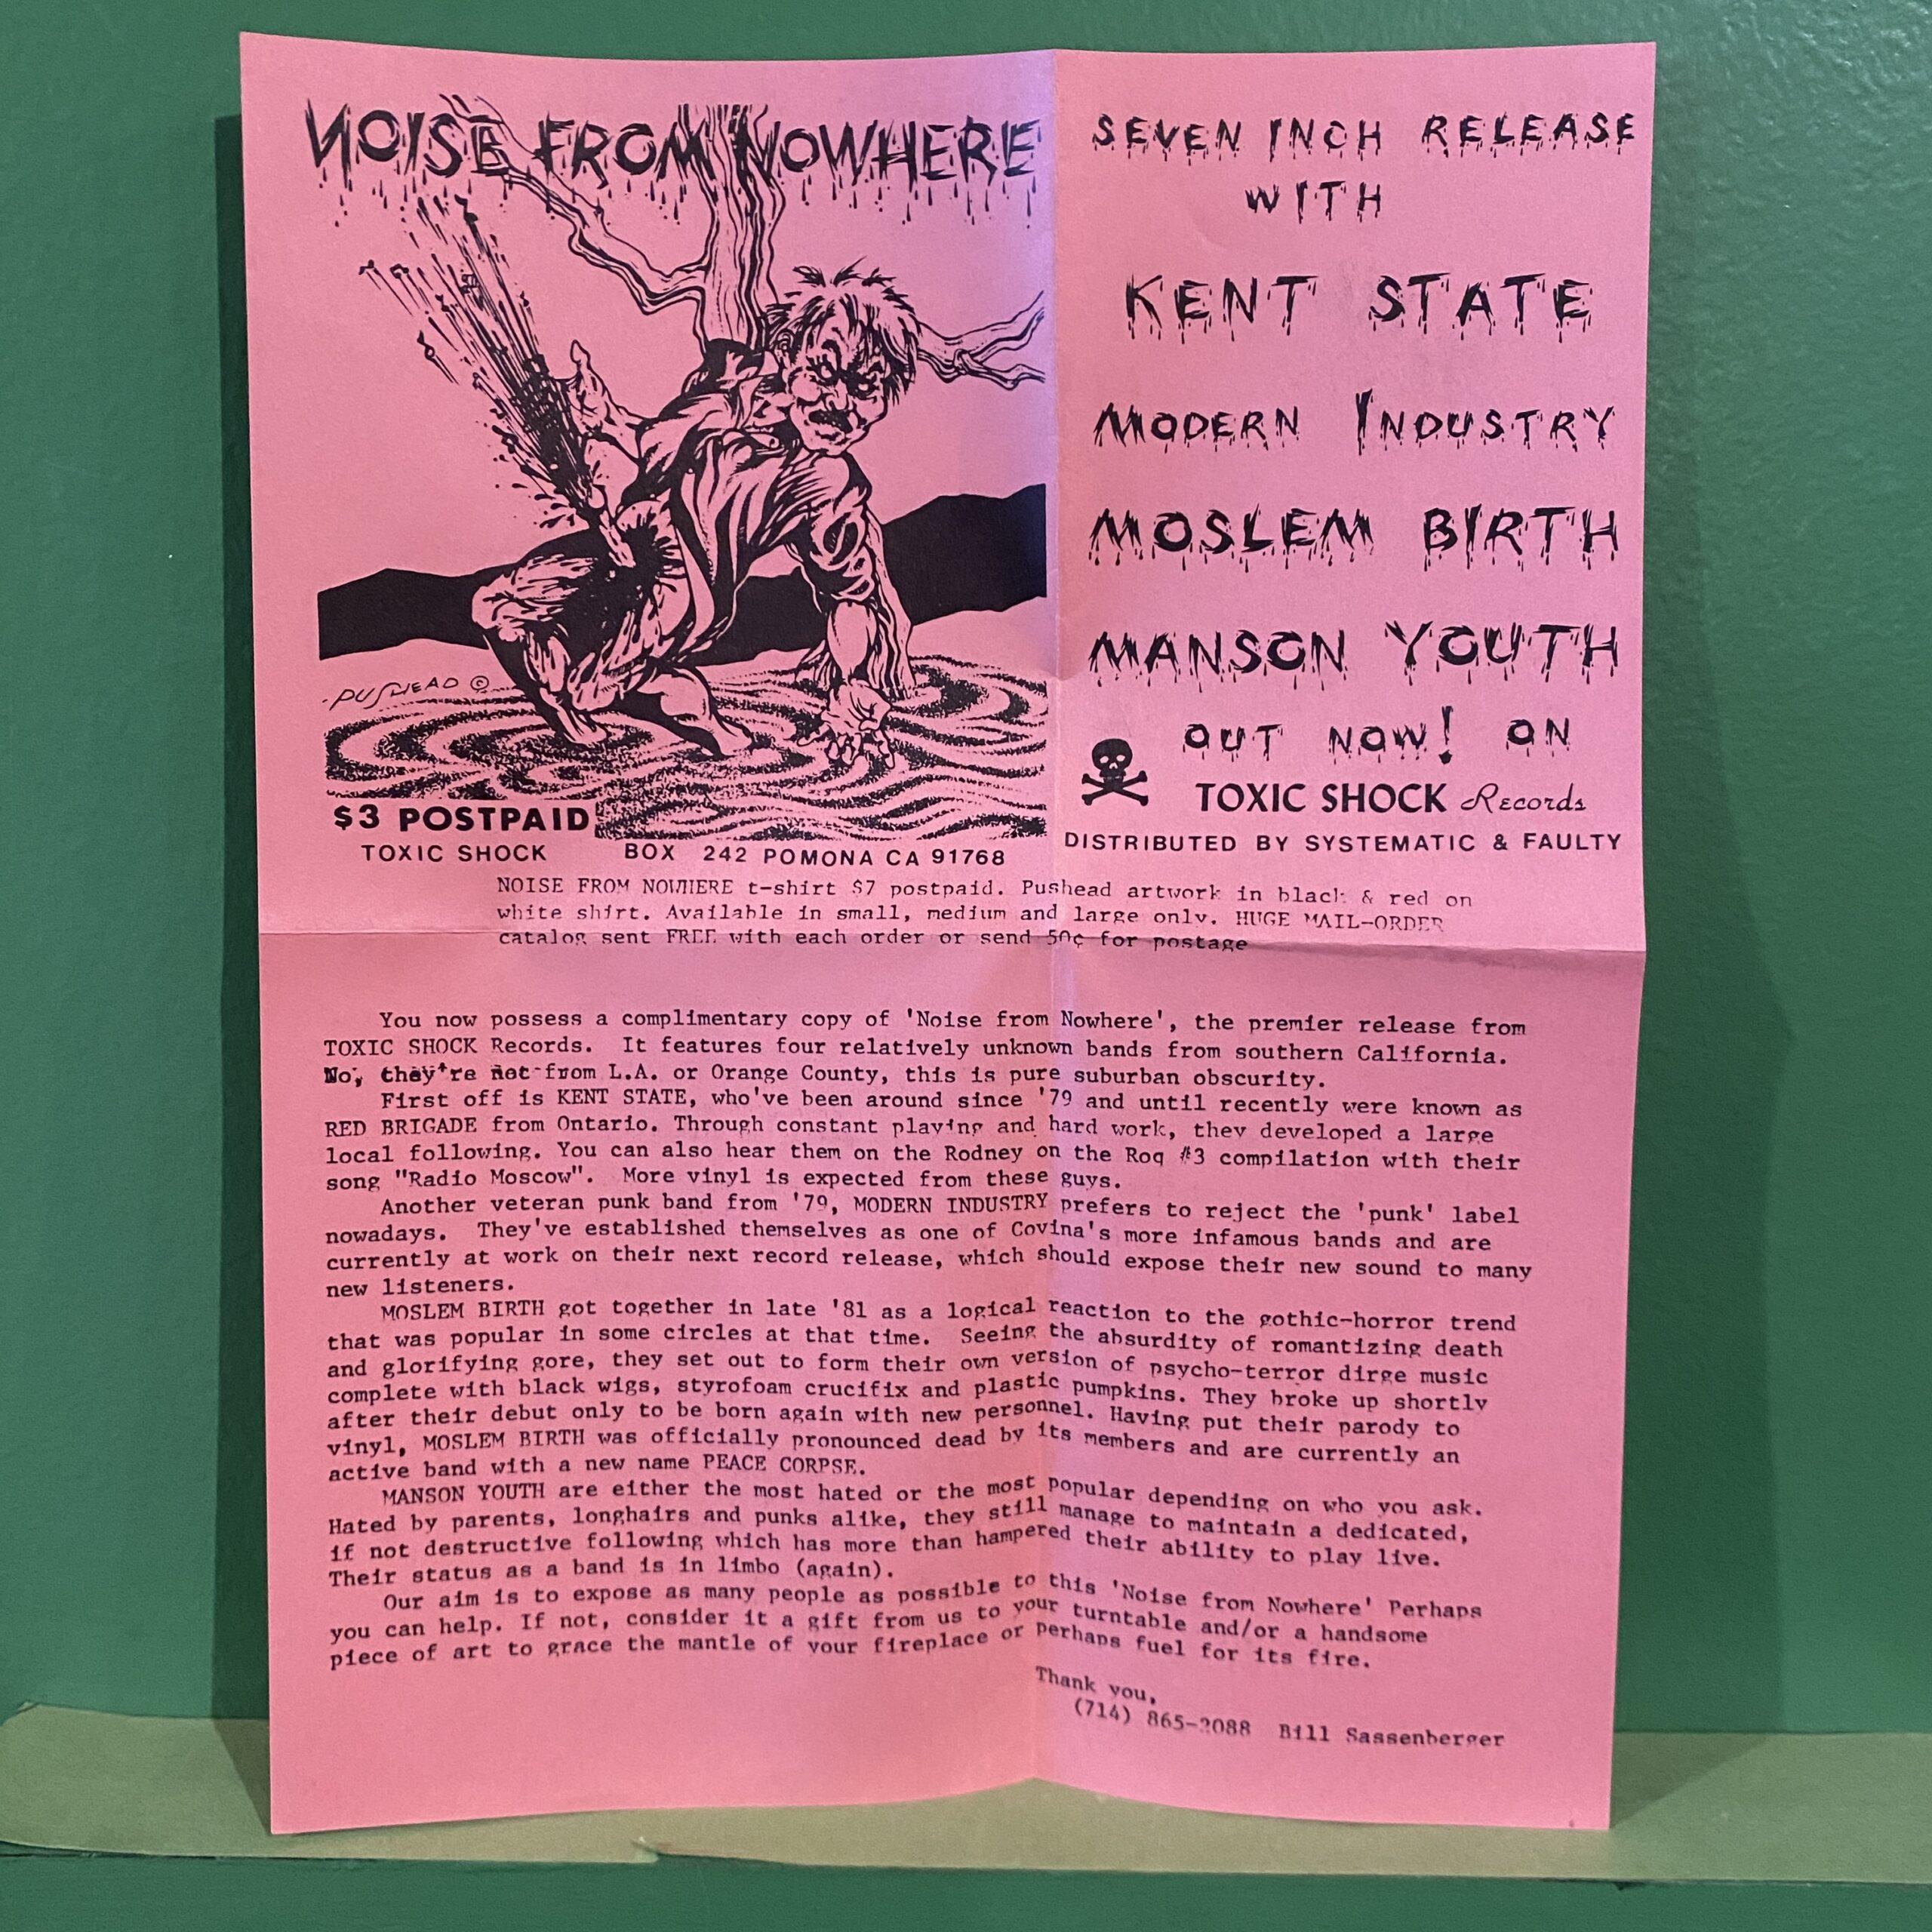 NOISE FROM NOWHERE
PUSHEAD ©
$3 POSTPAID
TOXIC SHOCK BOX 242 POMONA CA 91768
SEVEN INCH RELEASE
WITH
KENT STATE
MODERN INDUSTRY
MOSLEM BIRTH
MANSON YOUTH
OUT NOW! ON
TOXIC SHOCK Records
DISTRIBUTED BY SYSTEMATIC & FAULTY
NOISE FROM NOWHERE t-shirt $7 postpaid. Pushead artwork in black & red on
white shirt. Available in small, medium and large only. HUGE MAIL-ORDER
catalog sent FREE with each order or send 50¢ for postage
You now possess a complimentary copy of 'Noise from Nowhere', the premier release from
TOXIC SHOCK Records. It features four relatively unknown bands from southern California.
No, they're not from L.A. or Orange County, this is pure suburban obscurity.
First off is KENT STATE, who've been around since '79 and until recently were known as
RED BRIGADE from Ontario. Through constant playing and hard work, they developed a large
local following. You can also hear them on the Rodney on the Roq #3 compilation with their
song "Radio Moscow". More vinyl is expected from these guys.
Another veteran punk band from '79, MODERN INDUSTRY prefers to reject the 'punk' label
nowadays. They've established themselves as one of Covina's more infamous bands and are
currently at work on their next record release, which should expose their new sound to many
new listeners.
MOSLEM BIRTH got together in late '81 as a logical reaction to the gothic-horror trend
that was popular in some circles at that time. Seeing the absurdity of romantizing death
and glorifying gore, they set out to form their own version of psycho-terror dirge music
complete with black wigs, styrofoam crucifix and plastic pumpkins. They broke up shortly
after their debut only to be born again with new personnel. Having put their parody to
vinyl, MOSLEM BIRTH was officially pronounced dead by its members and are currently an
active band with a new name PEACE CORPSE.
MANSON YOUTH are either the most hated or the most popular depending on who you ask.
Hated by parents, longhairs and punks alike, they still manage to maintain a dedicated,
if not destructive following which has more than hampered their ability to play live.
Their status as a band is in limbo (again).
Our aim is to expose as many people as possible to this 'Noise from Nowhere' Perhaps
you can help. If not, consider it a gift from us to your turntable and/or a handsome
piece of art to grace the mantle of your fireplace or perhaps fuel for its fire.
Thank you,
(714) 865-2088 Bill Sassenberger